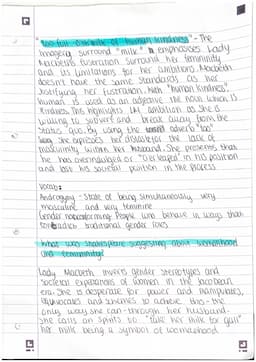 "Too full o'the milk of human kindness" - The
imagery surround "milk" emphasises Lady
Macbeths frustration surround her femininity
and its limitations for her ambitions. Macbeth
doesn't have the same standards as her
justifying her frustration. With "human kindness",
human is used as an adjective the noun which is
kindness. This highlights LM ambition as she is
willing to subvert and break away from the
status quo. By using the adverb "too"
she expresses her distaste for the lack of
masculinity within her husband. She presents that
he has overindulged or "overlapped" in his position
and lost his societal position in the process
Vocab:
Androgyny - State of being simultaneously very
masculine and very feminine
Gender nonconforming People who behave in ways that
traditional gender lines
What was Shakespeare suggesting about womanhood
and femininity?
Lady Macbeth inverts gender stereotypes and
societal expectations of women in the Jacobean
era. She is desperate for power and manipulates,
and schemes to achieve this - the
only way she can - through her husband.
She calls on spirits to "take her milk for gall"
her milk being a symbol of womanhood